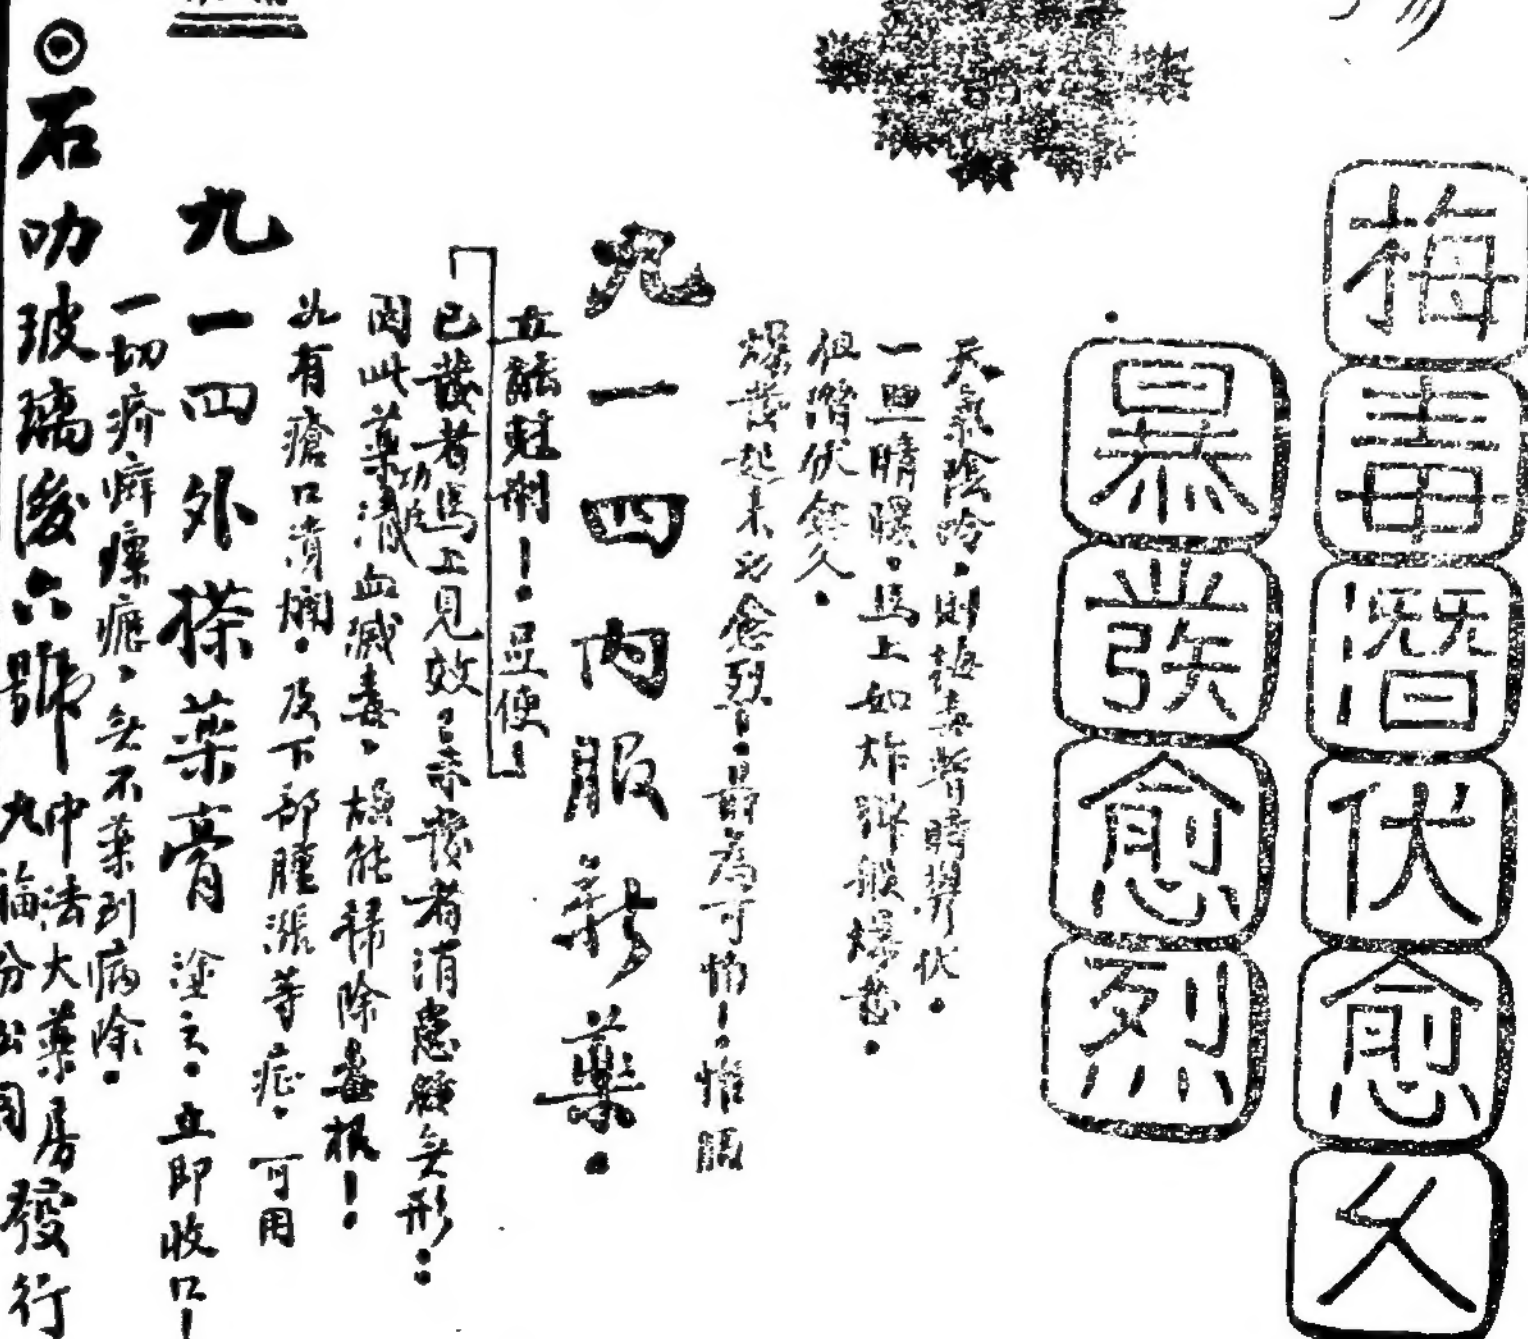 梅毒潛伏愈久
暴發愈烈
天氣陰冷。則梅毒暫時潛伏。
一旦晴暖。馬上如炸彈般爆發。
但潛伏愈久。
爆發起來亦愈烈！最為可怕！惟服
九一四內服新藥。
立能尅制！並使！
已發者馬上見效！未發者消患於無形！
因此藥功能清血滅毒。極能掃除毒根！
如有瘡口潰爛。及下部腫漲等症。可用
九一四外搽藥膏 塗之。立即收口！
一切疥癬瘰癧。無不藥到病除。
石叻玻璃後六號 中法大藥房 九福分公司 發行